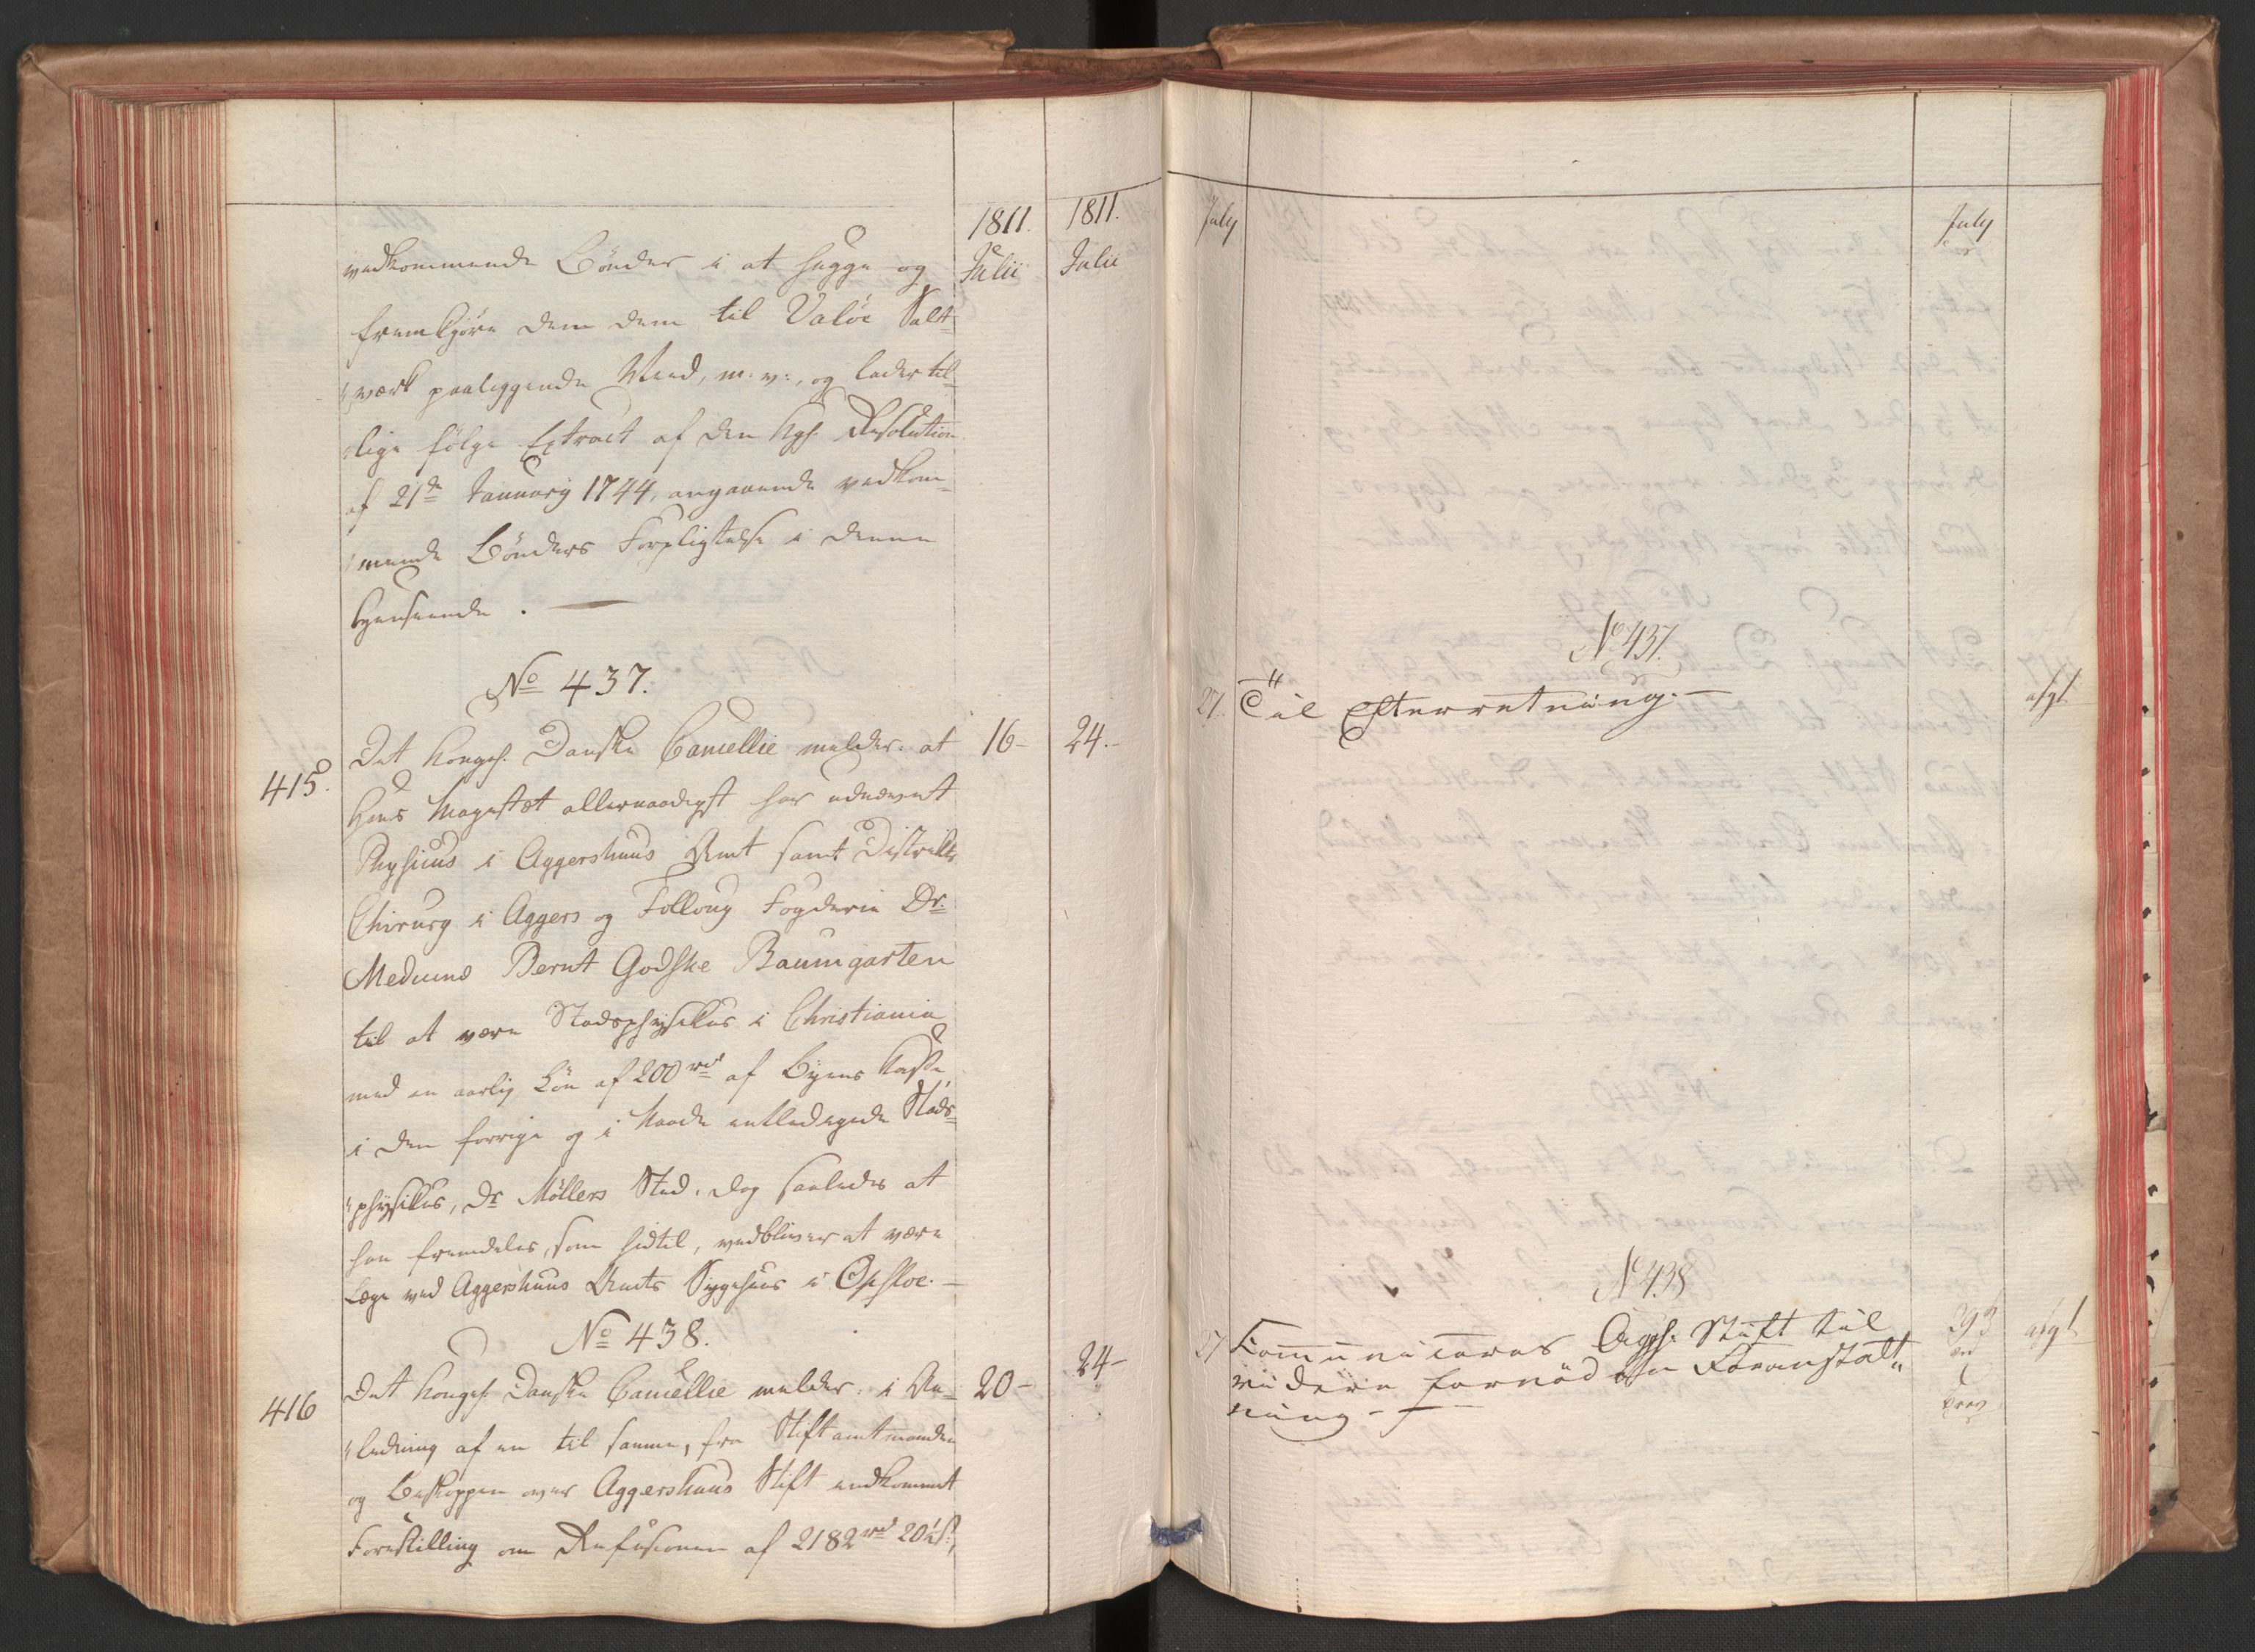 1811. 1811.
Julii Julii
vedkommende Bönder i at hugge og
fremkjöre dem dem til Valöe Salt-
værk paaliggende Weed, m: v:, og lader til-
lige fölge Extract af den Kgl. Resolution
af 21de January 1744, angaaende vedkom-
mende Bönders Forpligtelse i denne
Henseende. —
No 437.
415. Det kongel. Danske Cancellie melder: at 16- 24.-
Hans Majestæt allernaadigst har udnævnt
Physicus i Aggershuus Amt samt Districts
Chirurg i Aggers og Folloug Fogderie Dr.
Medicinæ Bernt Godske Baumgarten
til at være Stadsphysikus i Christiania
med en aarlig Lön af 200 rd af Byens Kasse
i den forrige og i Naade entledigede Stads-
physikus, Dr Möllers Sted, dog saaledes at
han fremdeles, som hidtil, vedbliver at være
Læge ved Aggershuus Amts Sygehuus i Opsloe. —
No 438.
416 Det kongel. Danske Cancellie melder: i An- 20- 24-
ledning af en til samme, fra Stiftamtmanden
og Biskoppen over Aggershuus Stift indkommet
Forestilling om Refusionen af 2182 rd 20 ß,
July July
No 437.
27. Til Efterretning. — afgl.
No 438
27 Communiceres Aggh. Stift til 293 afgl.
videre fornöden Foranstalt-
ning. —